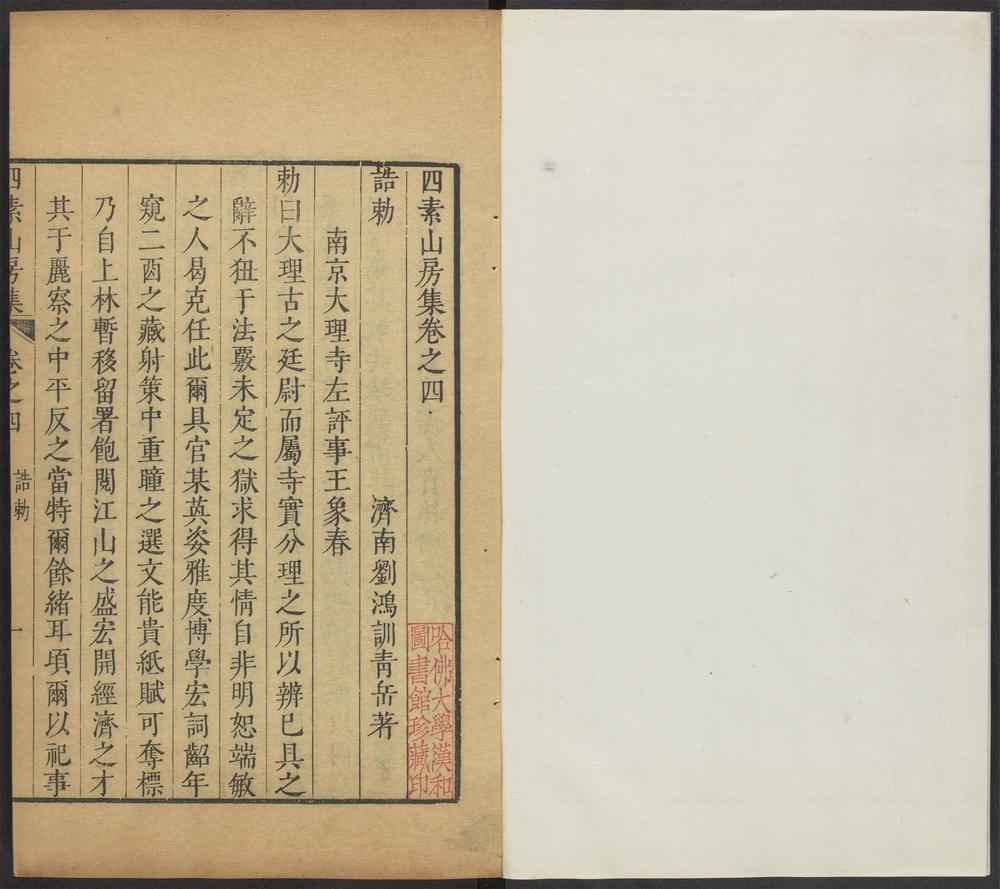 四素山房集卷之四
哈佛大學漢和
圖書館珍藏印
誥勅　濟南劉鴻訓靑岳著
南京大理寺左評事王象春
勅曰大理古之廷尉而屬寺實分理之所以辨已具之
辭不狃于法覈未定之獄求得其情自非明恕端敏
之人曷克任此爾具官某英姿雅度博學宏詞齠年
窺二酉之藏射策中重瞳之選文能貴紙賦可奪標
乃自上林暫移留署飽閱江山之盛宏開經濟之才
其于麗察之中平反之當特爾餘緒耳頃爾以祀事
四素山房集　卷之四　誥勅　一